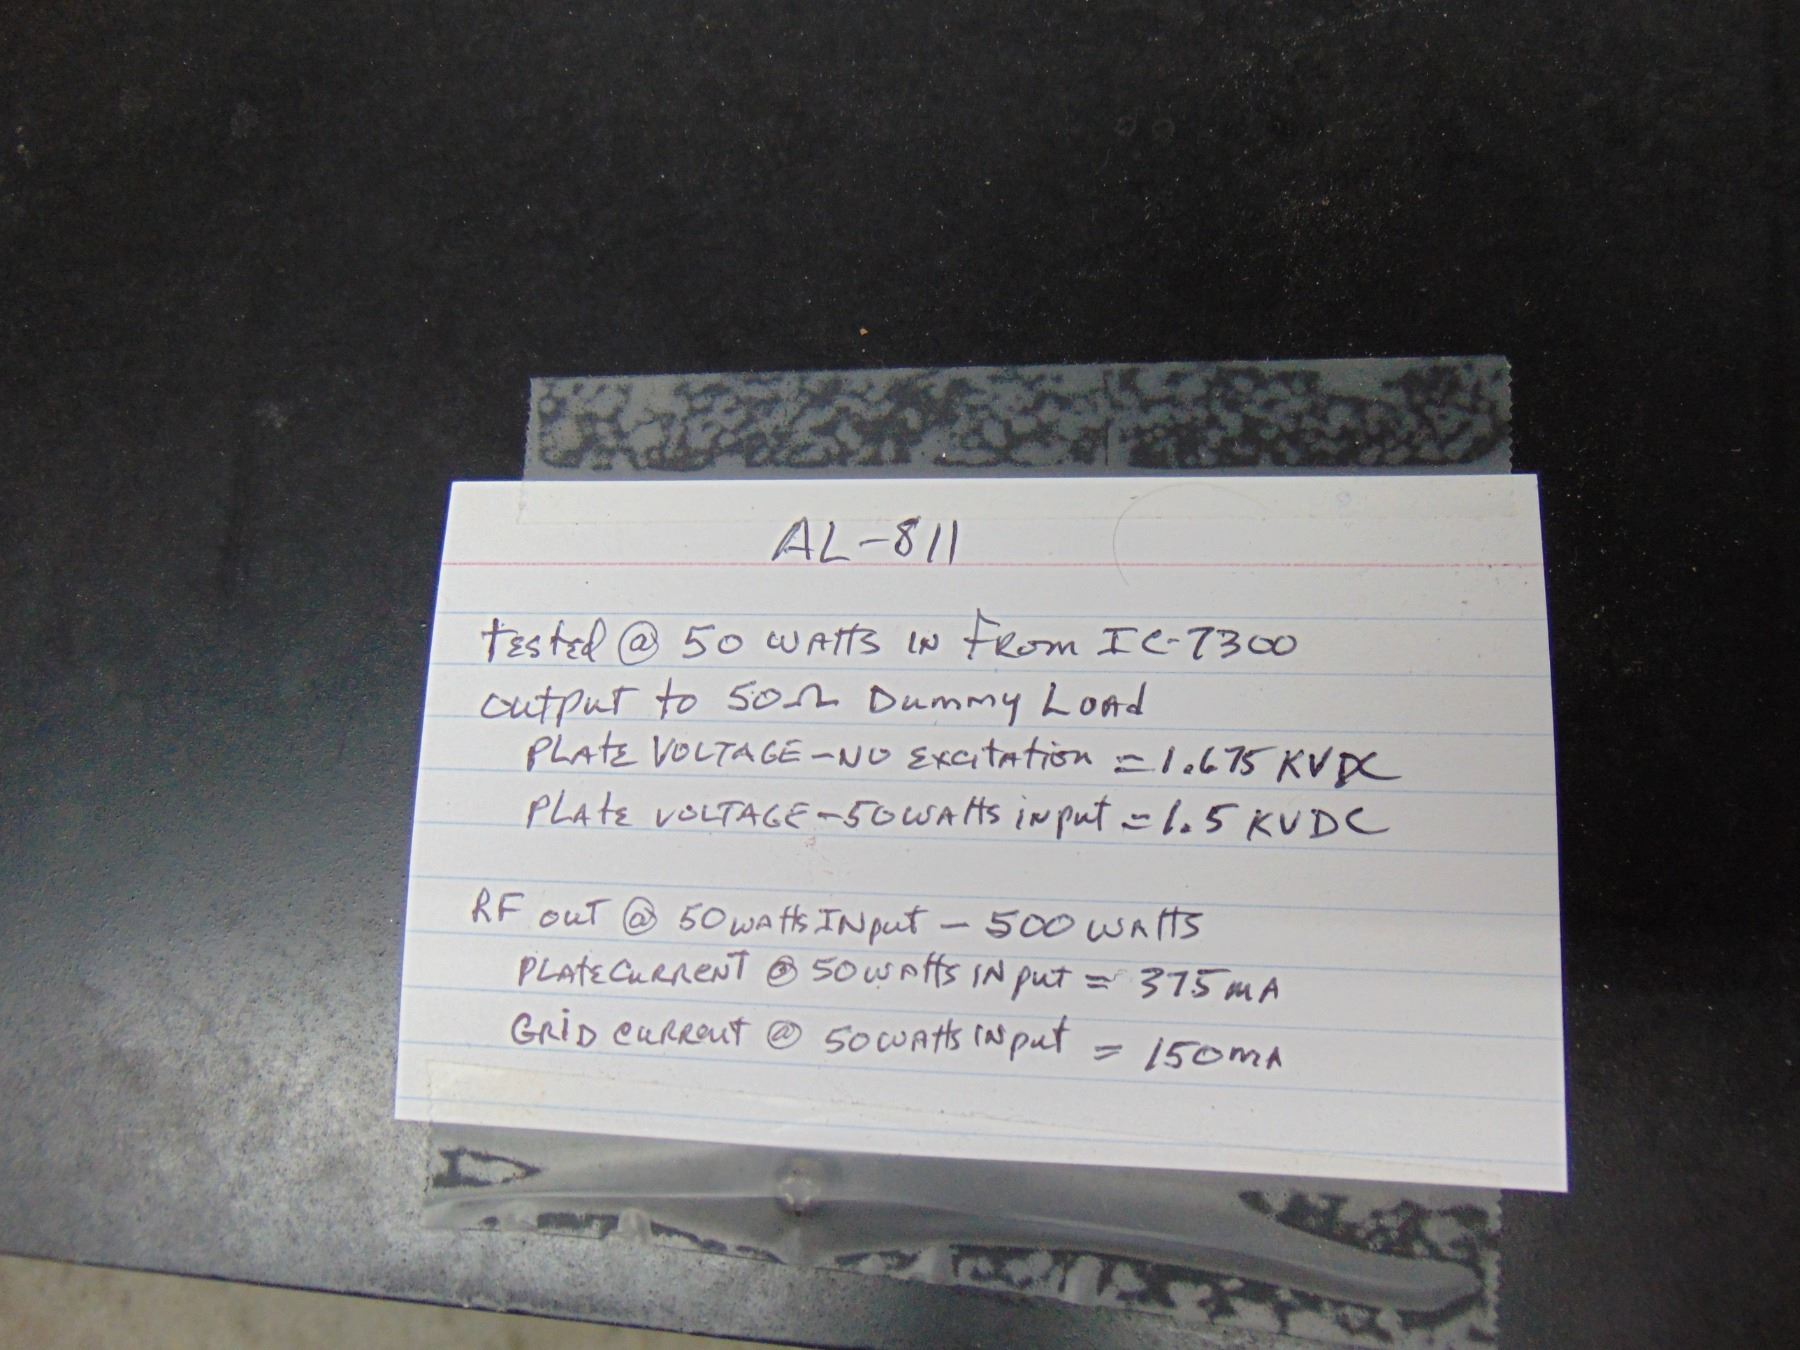 AL-811
tested @ 50 WATTS IN FROM IC-7300
OUTPUT to 50Ω DUMMY LOAd
PLATE VOLTAGE - NO EXCITATION = 1.675 KVDC
PLATE VOLTAGE - 50 WATTS INPUT = 1.5 KVDC
RF OUT @ 50 WATTS INPUT - 500 WATTS
PLATE CURRENT @ 50 WATTS INPUT = 375 mA
GRID CURRENT @ 50 WATTS INPUT = 150 mA